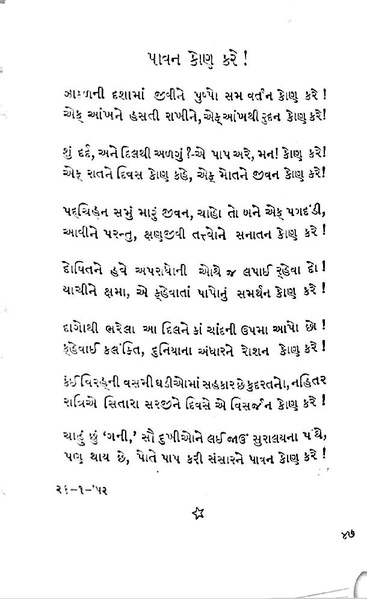 પાવન કોણ કરે !
ઝાકળની દશામાં જીવીને પુષ્પો સમ વર્તન કોણ કરે !
એક આંખને હસતી રાખીને, એક આંખથી રુદન કોણ કરે!
શું દર્દ, અને દિલથી અળગું ?-એ પાપ અરે, મન! કોણ કરે !
એક રાતને દિવસ કોણ કહે, એક મોતને જીવન કોણ કરે !
પદચિહ્ન સમું મારું જીવન, ચાહો તો બને એક પગદંડી,
આવીને પરન્તુ, ક્ષણજીવી તત્ત્વોને સનાતન કોણ કરે !
દોષિતને હવે અપરાધોની ઓથે જ લપાઈ રહેવા દો !
યાચીને ક્ષમા, એ કહેવાતાં પાપોનું સમર્થન કોણ કરે !
દાગોથી ભરેલા આ દિલને કાં ચાંદની ઉપમા આપો છો !
કહેવાઈ કલંકિત, દુનિયાના અંધારને રોશન કોણ કરે !
કંઈ વિરહની વસમી ઘડીઓમાં સહકાર છે કુદરતનો, નહિતર
રાત્રિએ સિતારા સરજીને દિવસે એ વિસર્જન કોણ કરે !
ચાહું છું ‘ગની,’ સૌ દુખીઓને લઈ જાઉં સુરાલયના પંથે,
પણ થાય છે, પોતે પાપ કરી સંસારને પાવન કોણ કરે !
૨૬-૧-’૫૨
૪૭